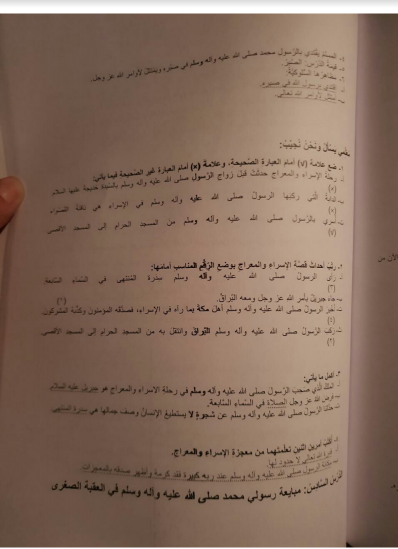 د. المسلم يقتدي بالرسول محمد صلى الله عليه وآله وسلم في صبره ويمتثل لأوامر الله عز وجل.
قيمة الدرس: الصبر.
مظاهرها السلوكية:
أقتدي برسول الله في صبره.
أمتثل لأوامر الله تعالى.
يسأل ونحن نجيب:
١. ضع علامة (√) أمام العبارة الصحيحة، وعلامة (×) أمام العبارة غير الصحيحة فيما يأتي:
رحلة الإسراء والمعراج حدثت قبل زواج الرسول صلى الله عليه وآله وسلم بالسيدة خديجة عليها السلام
(×)
الدابة التي ركبها الرسول صلى الله عليه وآله وسلم في الإسراء هي ناقته القصواء
(×)
أسري بالرسول صلى الله عليه وآله وسلم من المسجد الحرام إلى المسجد الأقصى
(√)
٢. رتب أحداث قصة الإسراء والمعراج بوضع الرقم المناسب أمامها:
رأى الرسول صلى الله عليه وآله وسلم سدرة المنتهى في السماء السابعة.
جاء جبريل بأمر الله عز وجل ومعه البراق.
أخبر الرسول صلى الله عليه وآله وسلم أهل مكة بما رآه في الإسراء، فصدقه المؤمنون وكذبه المشركون
(٤)
ركب الرسول صلى الله عليه وآله وسلم البراق وانتقل به من المسجد الحرام إلى المسجد الأقصى
(٢)
٣. أكمل ما يأتي:
الملك الذي صحب الرسول صلى الله عليه وآله وسلم في رحلة الإسراء والمعراج هو جبريل عليه السلام
فرض الله عز وجل الصلاة في السماء السابعة.
حدثنا الرسول صلى الله عليه وآله وسلم عن شجرة لا يستطيع الإنسان وصف جمالها هي سدرة المنتهى
أكتب أمرين اثنين تعلمتهما من معجزة الإسراء والمعراج.
قدرة الله تعالى لا حدود لها.
مكانة الرسول صلى الله عليه وآله وسلم عند ربه كبيرة فقد كرمه وأظهر صدقه بالمعجزات.
الدرس السادس: مبايعة رسولي محمد صلى الله عليه وآله وسلم في العقبة الصغرى